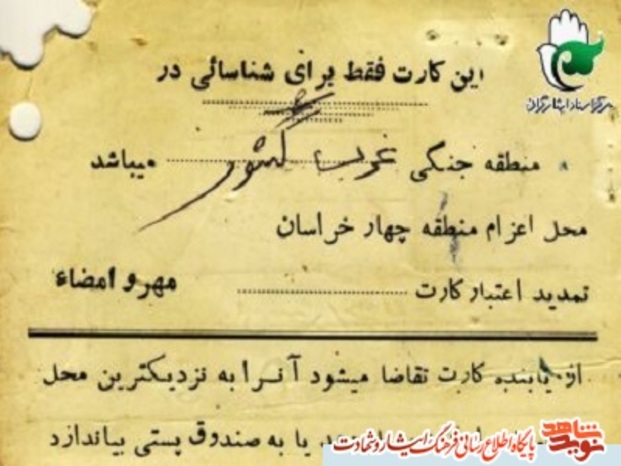 این کارت فقط برای شناسائی در
منطقه جنگی غرب کشور میباشد
محل اعزام منطقه چهار خراسان
تمدید اعتبار کارت .................... مهر و امضاء
از یابنده کارت تقاضا میشود آنرا به نزدیکترین محل
یا به صندوق پستی بیاندازد
مرکز اسناد ایثارگران
نوید شاهد
پایگاه اطلاع رسانی فرهنگ ایثار و شهادت